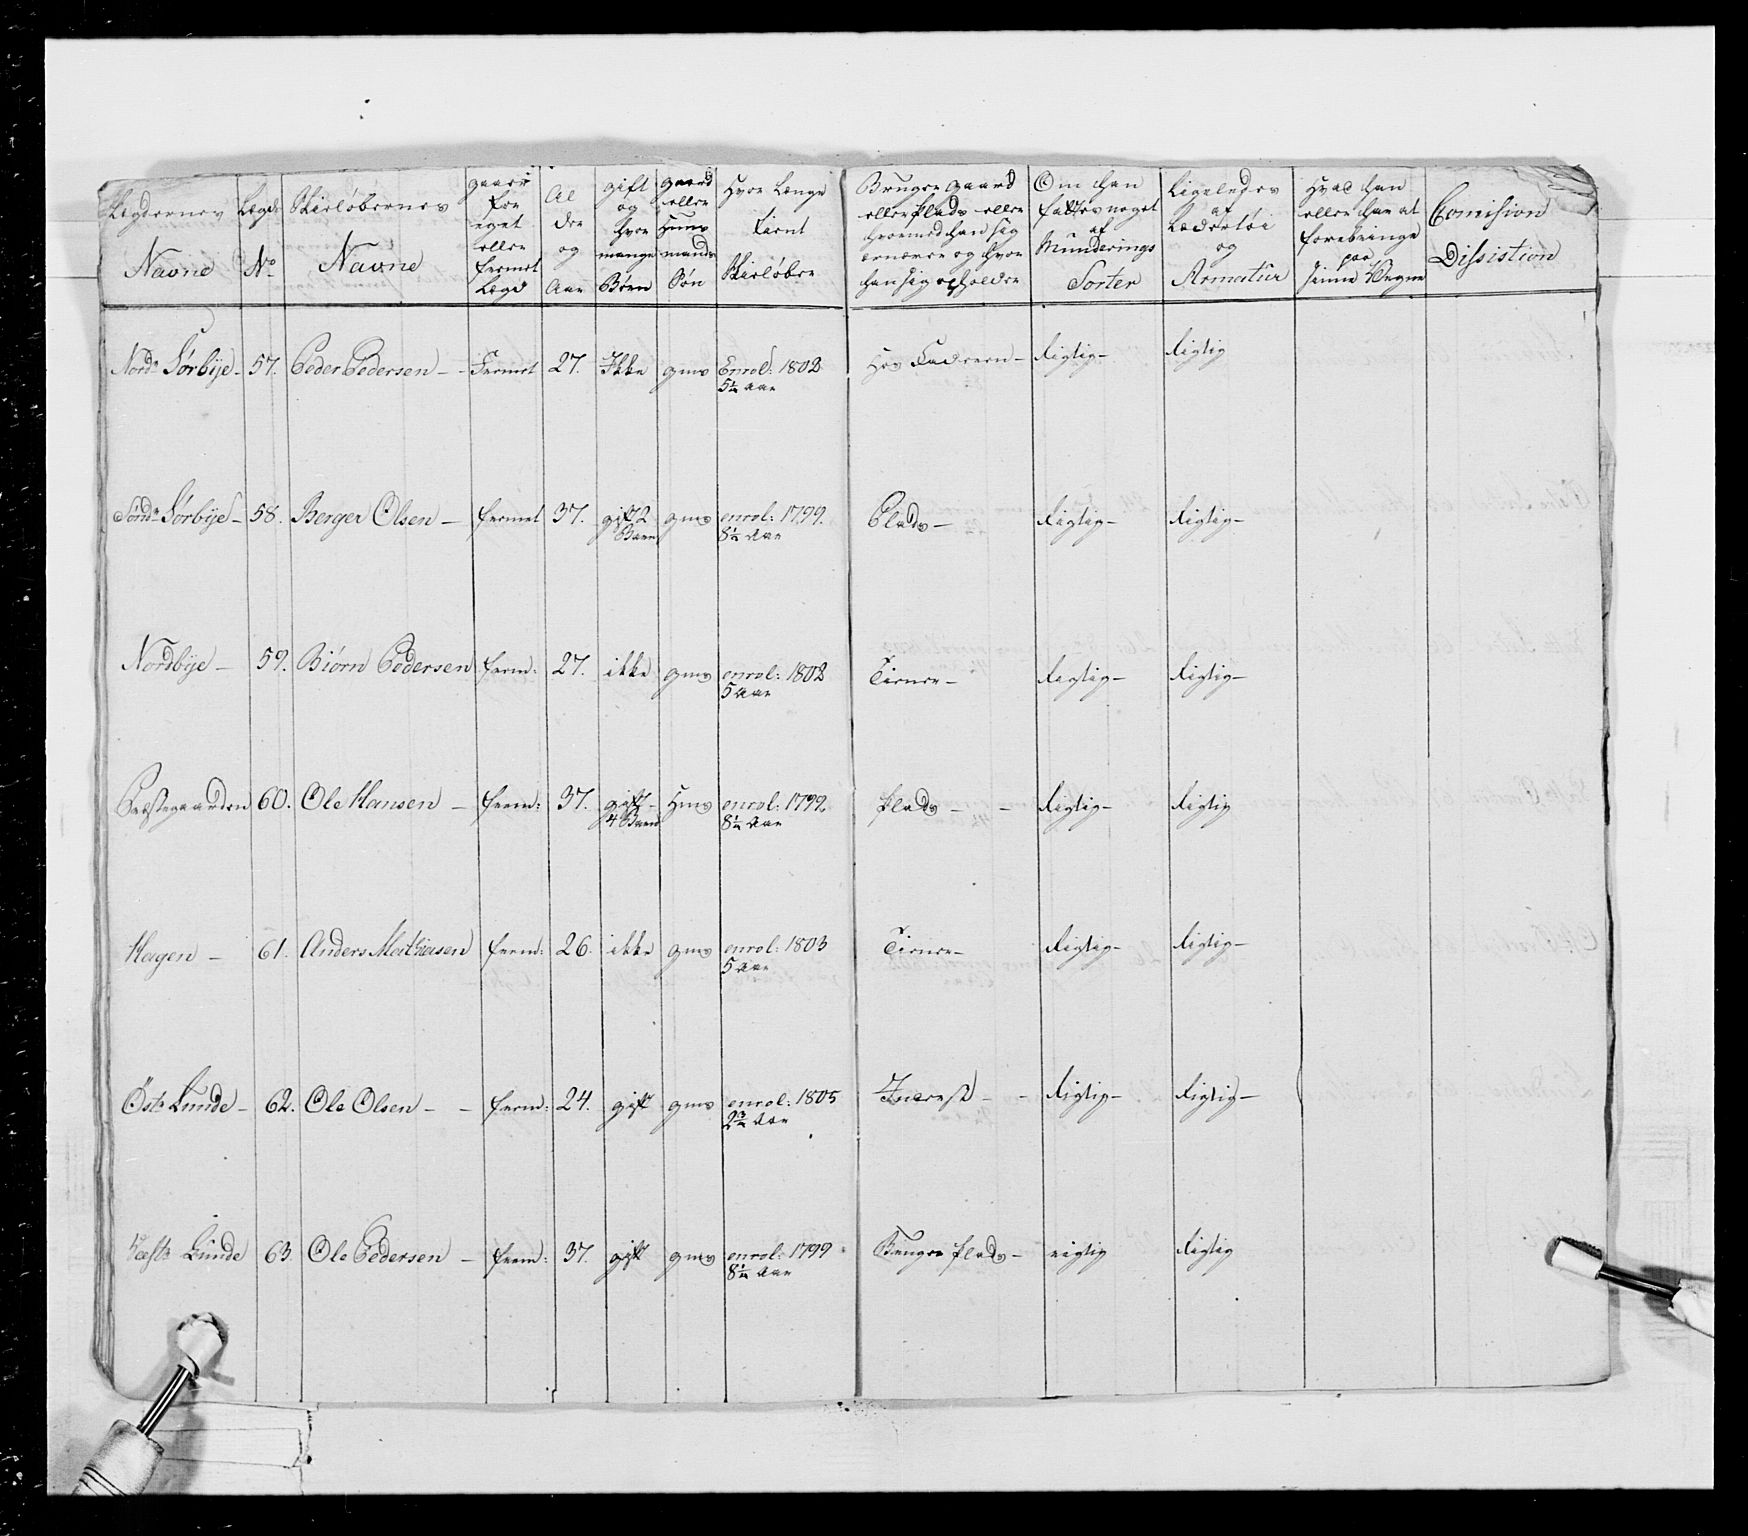 Lægdernes Navne | Lægds No | Skieløbernes Navne | gaaer for eget eller fermet Lægd | Al der og Aar | gift og hvor mange Børn | gaard eller Huus mands Søn | Hvor Længe tient Skieløber | Bruger gaard eller Plads eller hvormed han sig ernærer og hvor han sig opholder | Om han fattes noget af Munderings Sorter | Ligeledes af Lædertøi og Armatur | Hvad han eller har at forebringe paa sinne Vegne | Comision Dissistion
Nordre Sørbÿe - | 57. | Peder Pedersen - | Fermet | 27. | Ikke | gms | Enrol: 1802
5¼ Aar | Hos Faderen - | Rigtig - | Rigtig
Søndre Sørbÿe - | 58. | Berger Olsen - | fermet | 37. | gift 2 Børn | gms | enrol: 1799.
8¼ Aar | Plads - | Rigtig - | Rigtig -
Nordbÿe - | 59. | Biørn Pedersen | ferm: | 27. | ikke | gms | enrol: 1802
5 Aar | Tiener - | Rigtig - | Rigtig -
Præstegaarden | 60. | Ole Hansen - | ferm: | 37. | gift - 4 Børn | Hms | enrol: 1799.
8¼ Aar | Plads - - | Rigtig - | Rigtig
Hagen - | 61. | Anders Mathiesen | ferm: | 26. | ikke | gms | enrol: 1803
5 Aar | Tiener - | Rigtig - | Rigtig -
Østre Lunde - | 62. | Ole Olsen - - | ferm: | 24. | gift | gms | enrol: 1805
2¾ Aar | Inderst - - | Rigtig - | Rigtig -
Vestre Lunde | 63. | Ole Pedersen - | ferm: | 37. | gift | gms | enrol: 1799
8¼ Aar | Bruger Plads - | rigtig | Rigtig